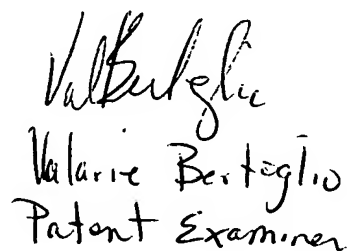 ValBertoglio
Valarie Bertoglio
Patent Examiner